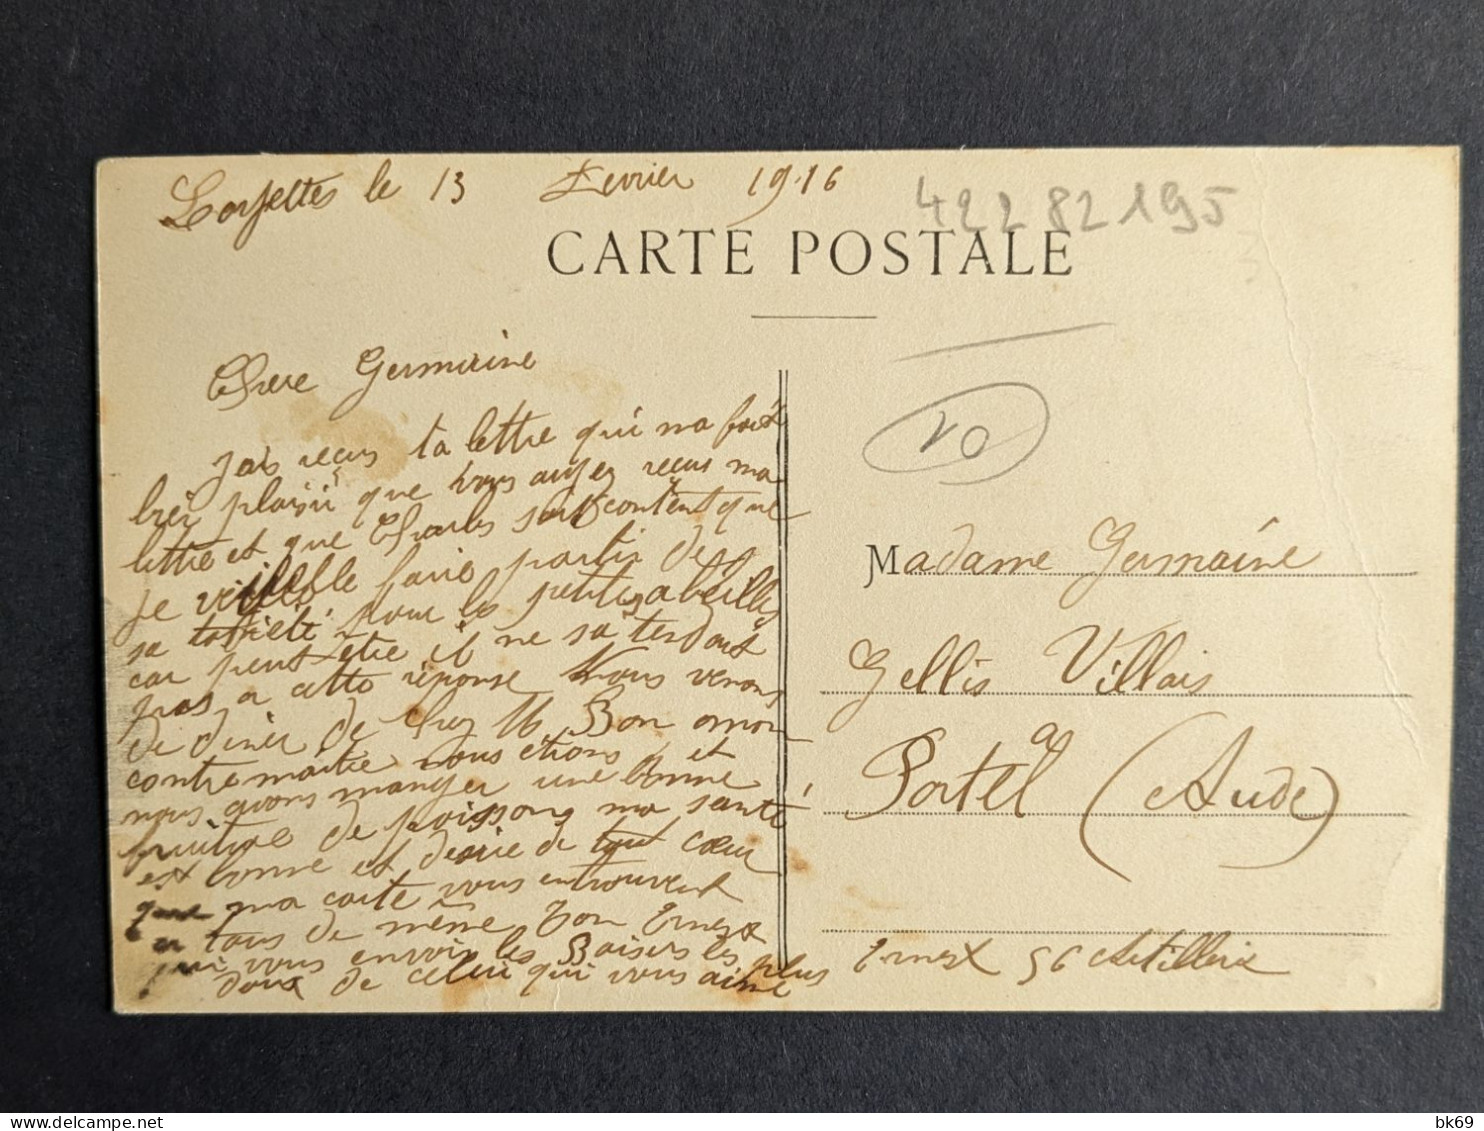 le 13 Fevrier 1916
42282195
CARTE POSTALE
Chere Germaine
jais reçus ta lettre qui ma fait
bien plaisir que vous aiyez reçus ma
lettre et que Charles soit content que
je veille faire partir de
sa pour les petites abeilles
car peut-être il ne sa tendait
pas a cette réponse Nous venons
de diner de chez M Bon amon
contremaitre nous etions et
nous avons manger une bonne
friture de poissons ma santé
est bonne et desire de tout cœur
que ma carte vous entrouvent
tous de même Ton Ernest
qui vous envoir les Baisers les plus
doux de celui qui vous aime
10
Madame Germaine
Gellis Villais
a
Portel (Aude)
Ernest 56 Artillerie
bk69